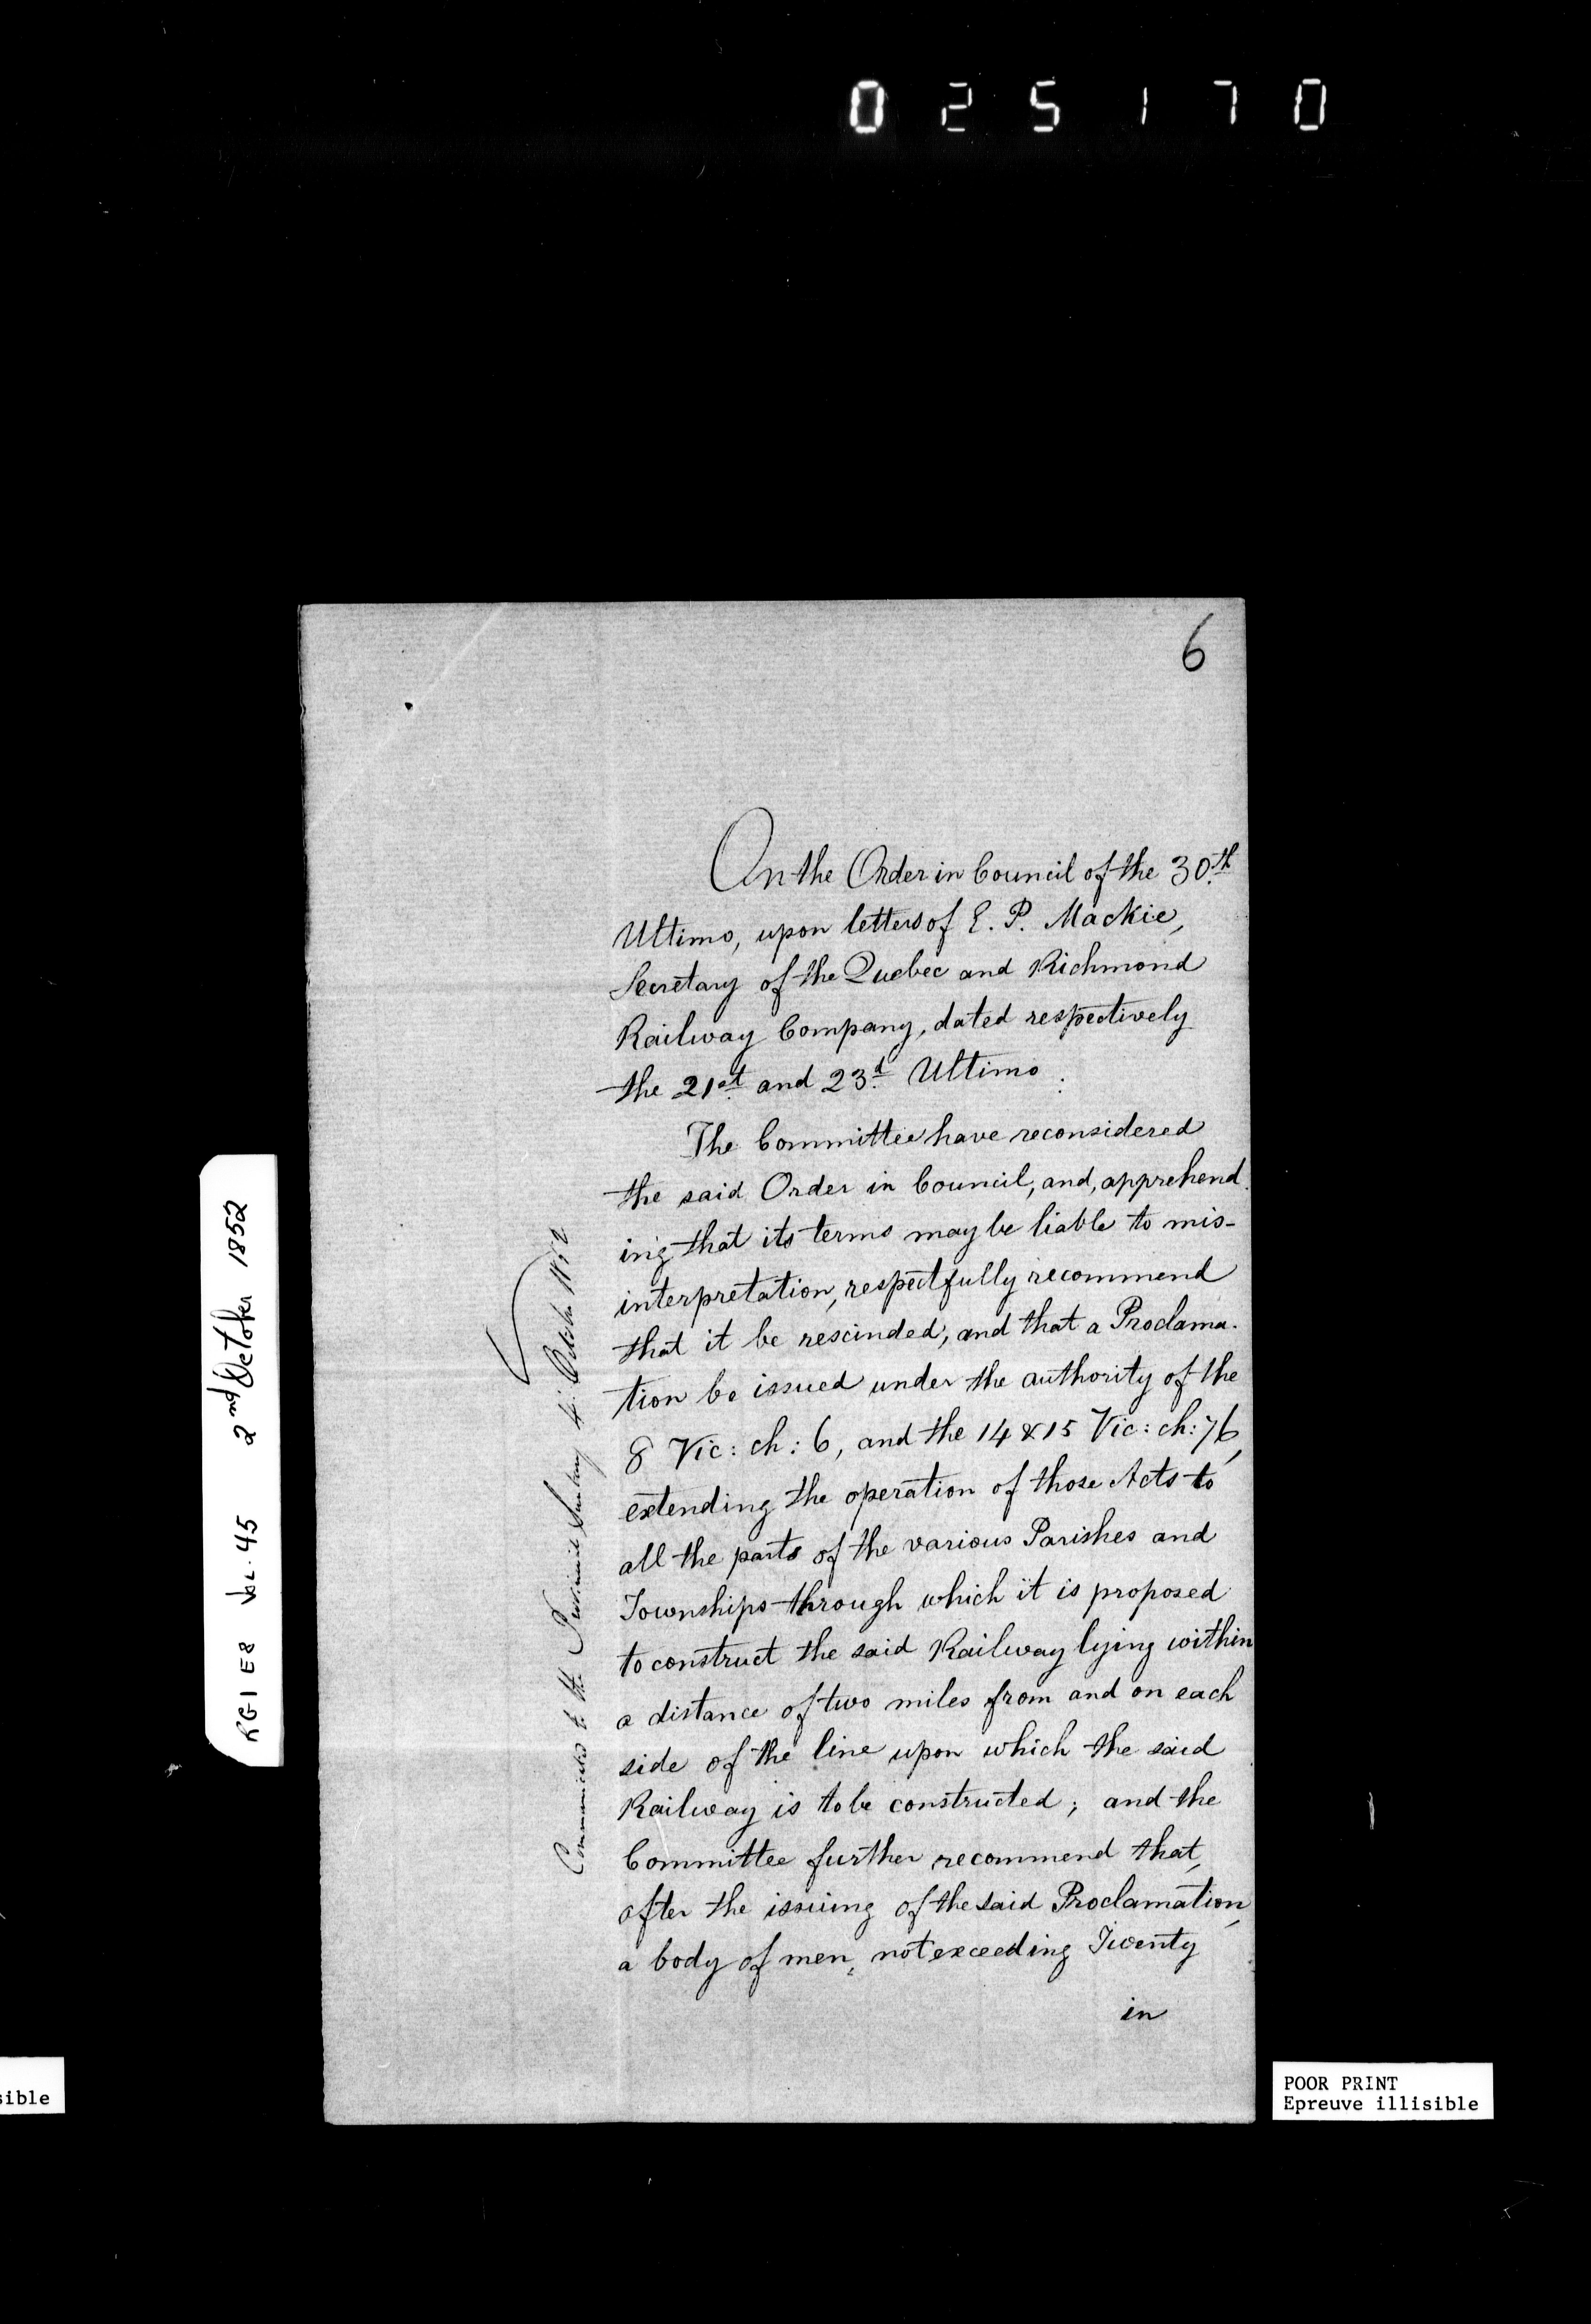 025170
6
On the Order in Council of the 30th
Ultimo, upon letters of E. P. Mackie,
Secretary of the Quebec and Richmond
Railway Company, dated respectively
the 21st and 23d Ultimo :
The Committee have reconsidered
the said Order in Council, and, apprehend-
ing that its terms may be liable to mis-
interpretation, respectfully recommend
that it be rescinded, and that a Proclama-
tion be issued under the authority of the
8 Vic: ch: 6, and the 14 & 15 Vic: ch: 76,
extending the operation of those Acts to
all the parts of the various Parishes and
Townships through which it is proposed
to construct the said Railway lying within
a distance of two miles from and on each
side of the line upon which the said
Railway is to be constructed; and the
Committee further recommend that,
after the issuing of the said Proclamation,
a body of men, not exceeding Twenty
in
Communicated to the Provincial Secretary 4: October 1852
RG1 E8 Vol. 45 2nd October 1852
sible
POOR PRINT
Epreuve illisible